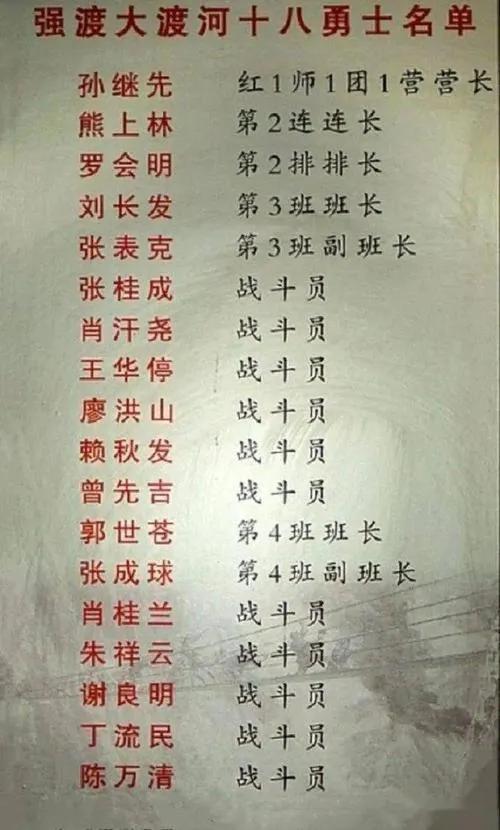 强渡大渡河十八勇士名单
孙继先 红1师1团1营营长
熊上林 第2连连长
罗会明 第2排排长
刘长发 第3班班长
张表克 第3班副班长
张桂成 战斗员
肖汗尧 战斗员
王华停 战斗员
廖洪山 战斗员
赖秋发 战斗员
曾先吉 战斗员
郭世苍 第4班班长
张成球 第4班副班长
肖桂兰 战斗员
朱祥云 战斗员
谢良明 战斗员
丁流民 战斗员
陈万清 战斗员